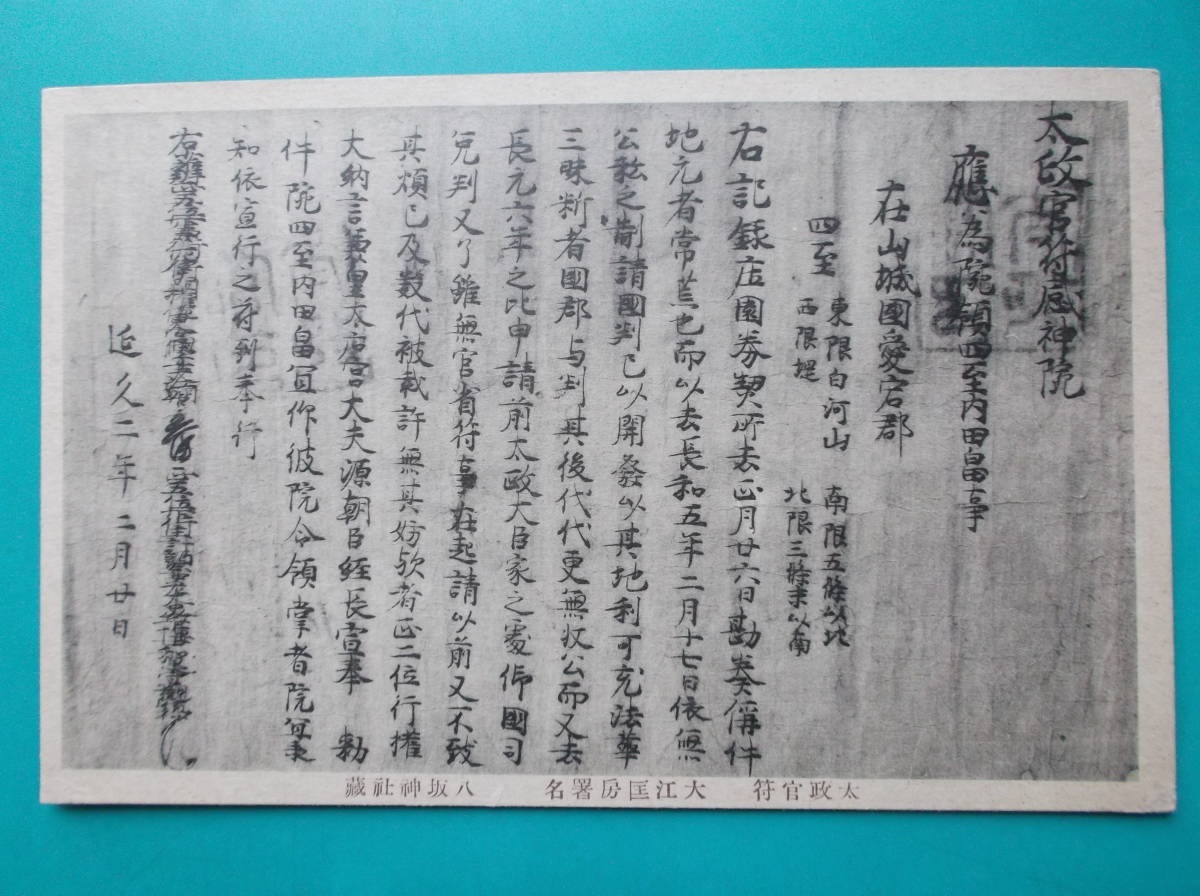 太政官符感神院
應為院領四至内田畠事
在山城國愛宕郡
四至 東限白河山 南限五條以北
西限堤 北限三條末以南
右記録庄園券契所去正月廿六日勘奏偁件
地元者常荒也而以去長和五年二月十七日依無
公私之制請國判已以開發以其地利可充法華
三昧新者國郡与判其後代代更無収公而又去
長元六年之比申請前太政大臣家之處 國司
免判又了雖無官省符事在起請以前又不致
其煩已及数代被裁許無其妨欤者正二位行權
大納言兼皇太后宮大夫源朝臣經長宣奉 勅
件院四至内田畠冝仰彼院令領掌者院冝承
知依宣行之符到奉行
延久二年二月廿日
太政官符 大江匡房署名 八坂神社藏